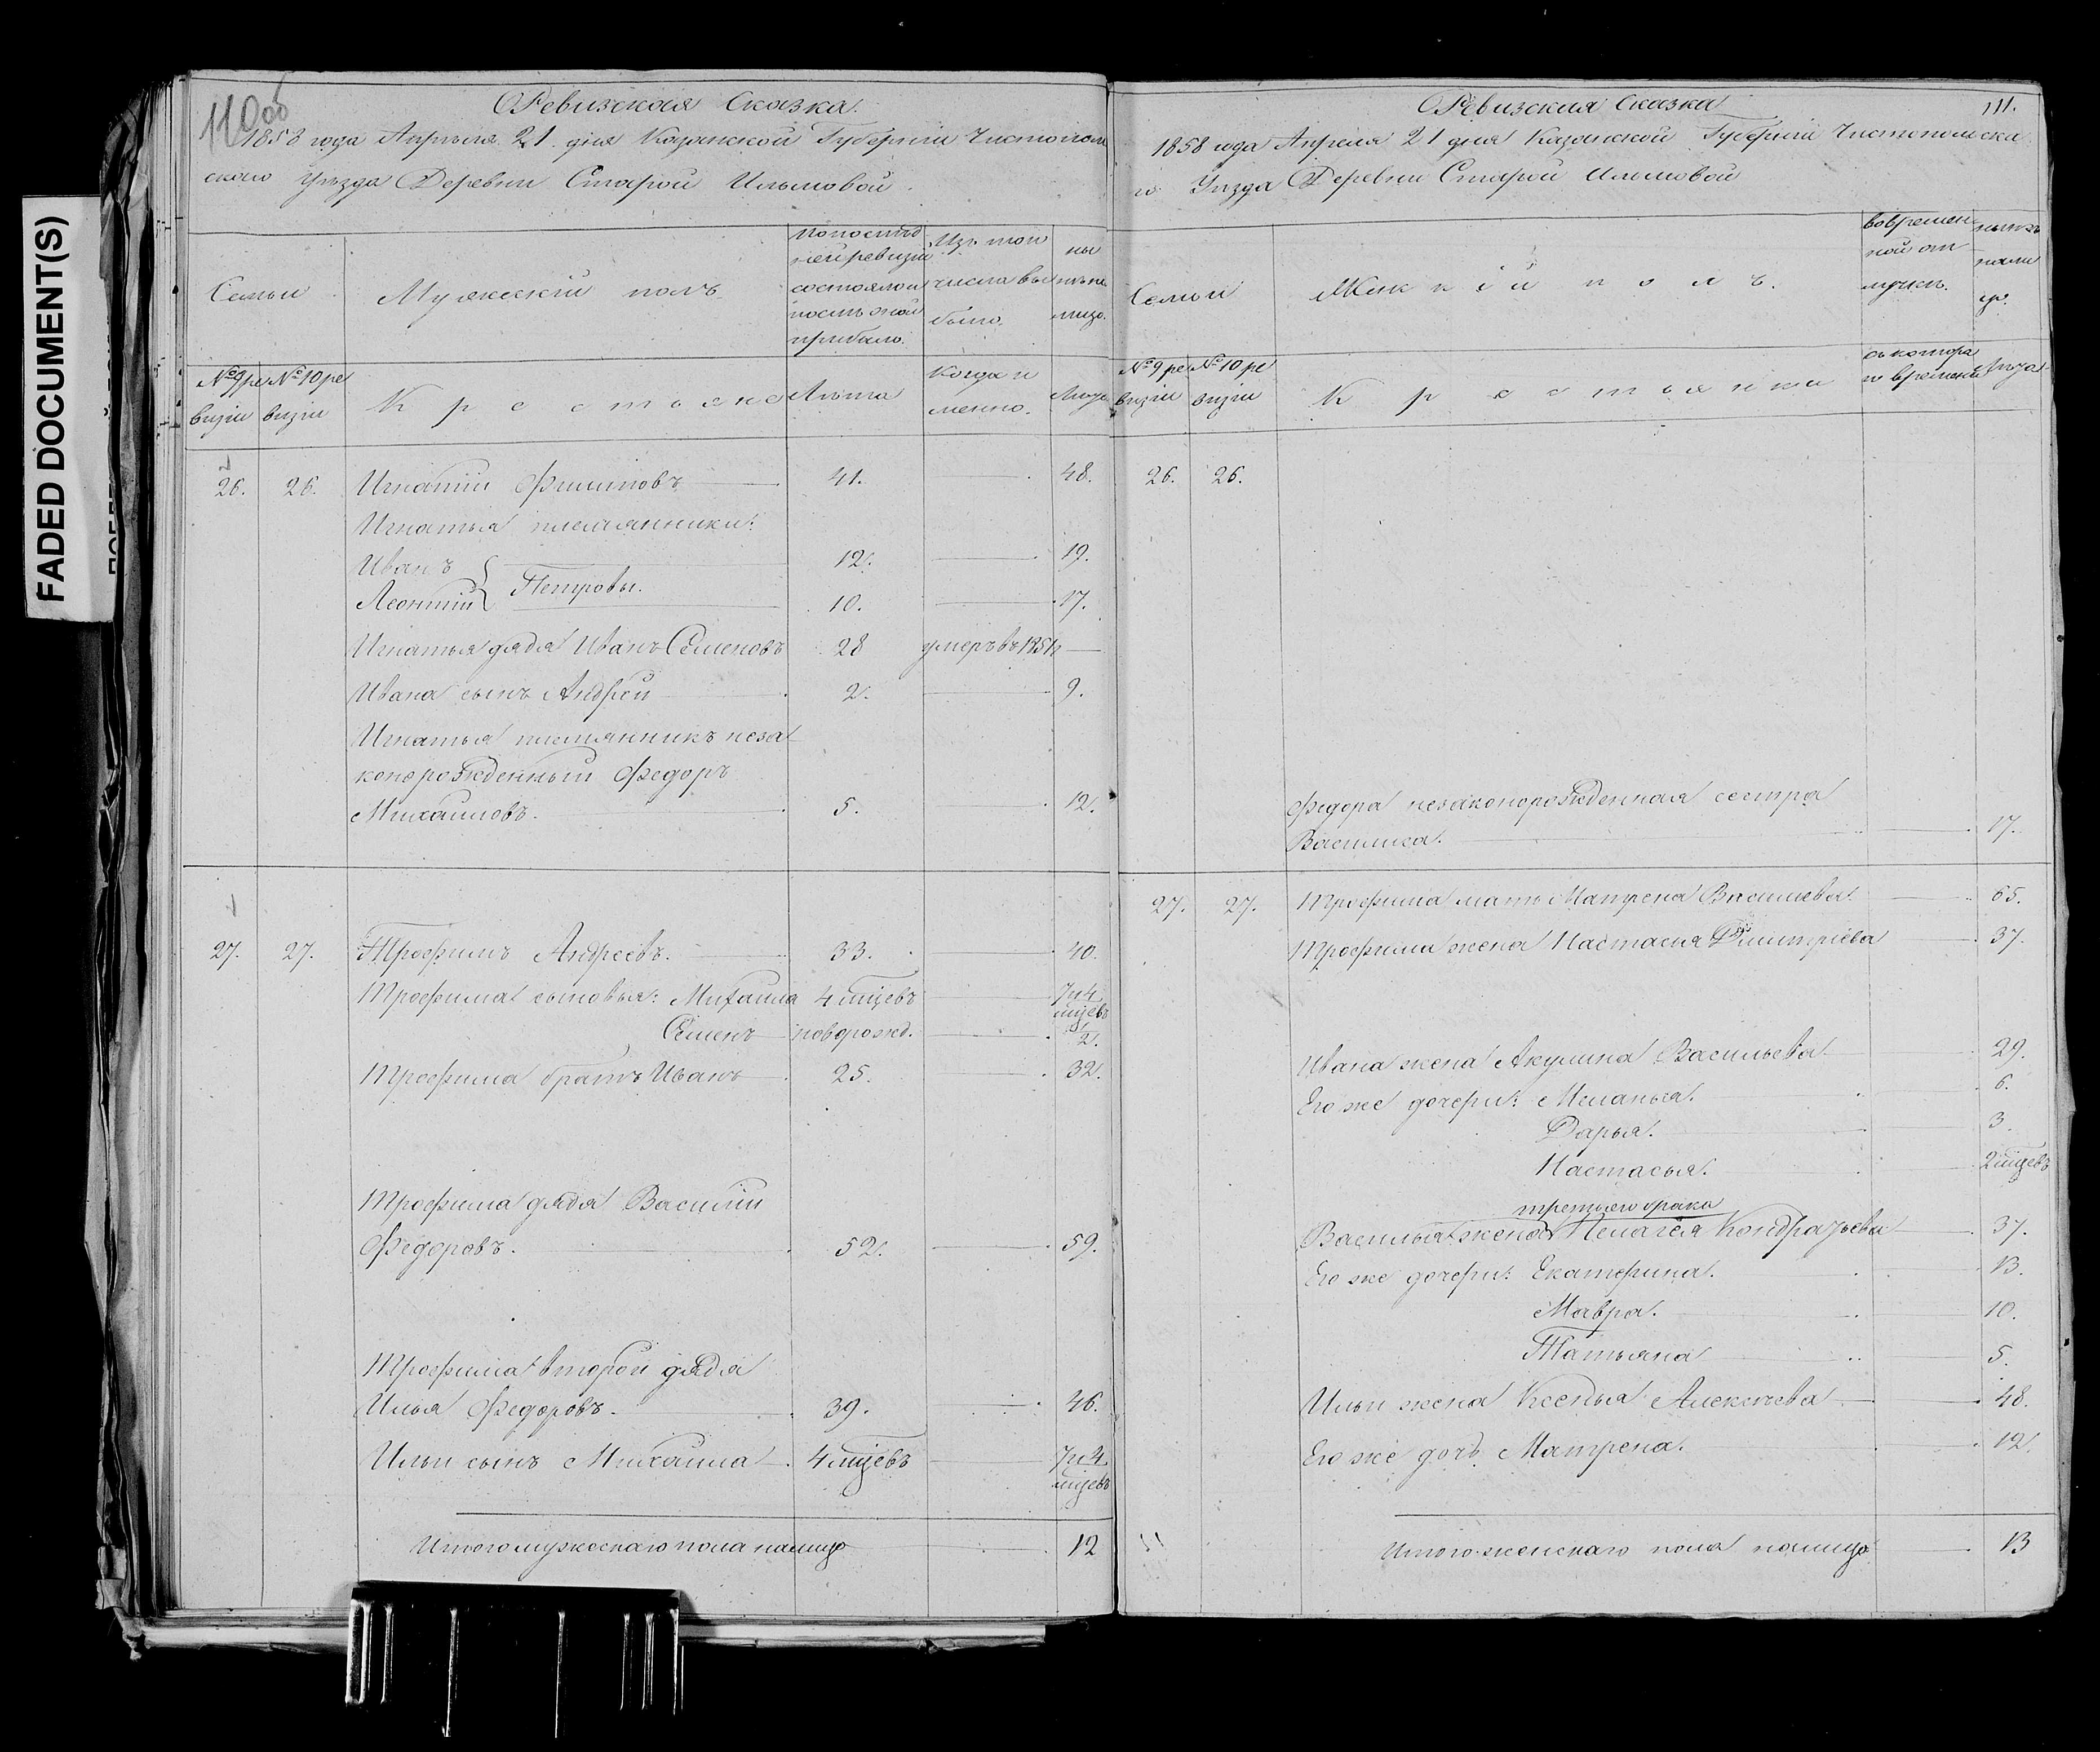 FADED DOCUMENT(S)
110 об
Ревизская Сказка.
1858 года Апрыля 21 дня Казанской Губерніи Чистополь
скаго Уѣзда Деревни Старой Ильмовой.
Семьи
Мужескій полъ
По послѣд
ней ревизіи
состояло и
послѣ оной
прибыло.
Изъ того
числа вы
было.
ны
нѣ на
лицо.
№ 9 ре
визіи
№ 10 ре
визіи
Крестьяне
Лѣта
Когда и
менно.
Лѣта
26. 26. Игнатій Филиповъ 41. 48.
Игнатья племянники:
Иванъ 12. 19.
Петровы.
Леонтій 10. 17.
Игнатья дядя Иванъ Семеновъ 28 умеръ въ 1851
Ивана сынъ Андрей 2. 9.
Игнатья племянникъ неза
конорожденный Федоръ
Михаиловъ. 5. 12.
27. 27. Трофимъ Андреевъ. 33. 40.
Трофима сыновья: Михаила 4 мцевъ 7 и 4
мцевъ
Семенъ новорожд. 1/2.
Трофима братъ Иванъ 25. 32.
Трофима дядя Василій
Федоровъ. 52. 59.
Трофима второй дядя
Илья Федоровъ. 39. 46.
Ильи сынъ Михаила 4 мцевъ 7 и 4
мцевъ
Итого мужескаго пола налицо 12
Ревизская Сказка 111.
1858 года Апреля 21 дня Казанской Губерніи Чистопольска
го Уѣзда Деревни Старой Ильмовой
Семьи
Женскій полъ.
во времен
ной от
лучкѣ.
нынѣ
нали
цо.
№ 9 ре
визіи
№ 10 ре
визіи
Крестьянки
съ котора
го времени
Лѣта
26. 26.
Федора незаконорожденная сестра
Василиса. 17.
27. 27. Трофима мать Матрена Васильева 65.
Трофима жена Настасия Дмитріева 37.
Ивана жена Акулина Васильева 29.
Его же дочери: Меланья. 6.
Дарья. 3.
Настасья. 2 мцевъ
третьяго брака
Василья жена Пелагея Кондратьева 37.
Его же дочери: Екатерина. 13.
Мавра. 10.
Татьяна 5.
Ильи жена Ксенья Алексѣева 48.
Его же дочь Матрена. 12.
Итого женскаго пола налицо 13